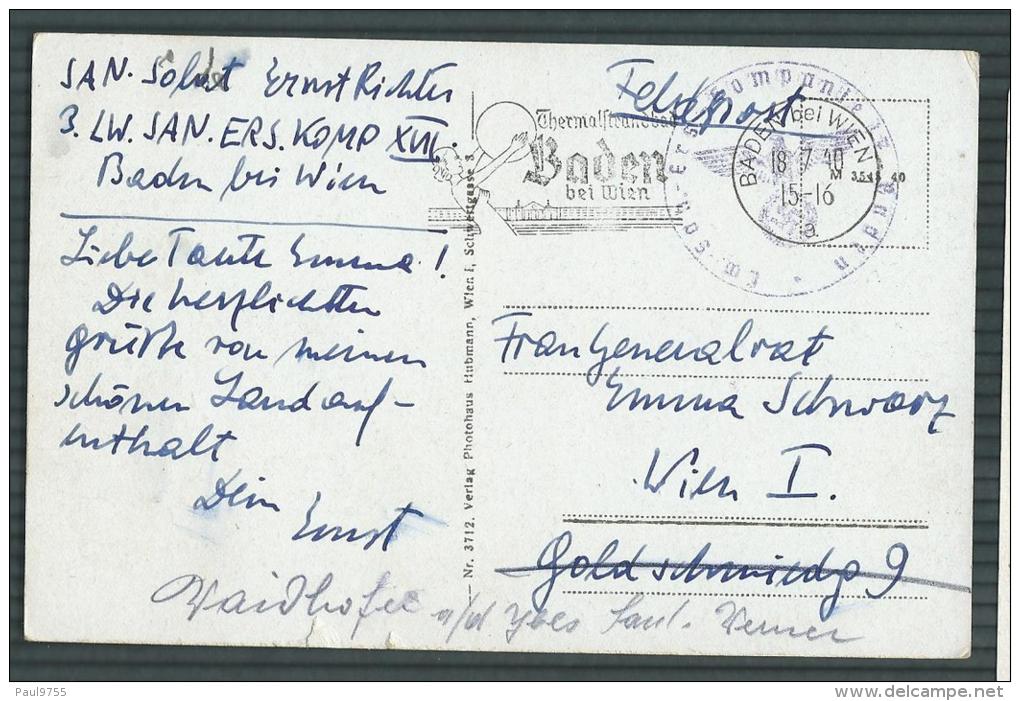 SAN. Soldat Ernst Richter
3. LW. SAN. ERS. KOMP XVII.
Baden bei Wien
Liebe Tante Emma!
Die herzlichsten
grüße von meinen
schönen Landauf-
enthalt
Dein
Ernst
Feldpost
Thermalstrandbad
Baden
bei Wien
BADEN bei WIEN
18 7 40
15-16
a
Lw.-San.-Ers. Kompanie
Nr. 3712. Verlag Photohaus Hubmann, Wien I, Schwertgasse 3.
Frau Generalrat
Emma Schwarz
Wien I.
Goldschmiedg 9
Waidhofen a/d Ybbs
Paul9755
delcampe.net